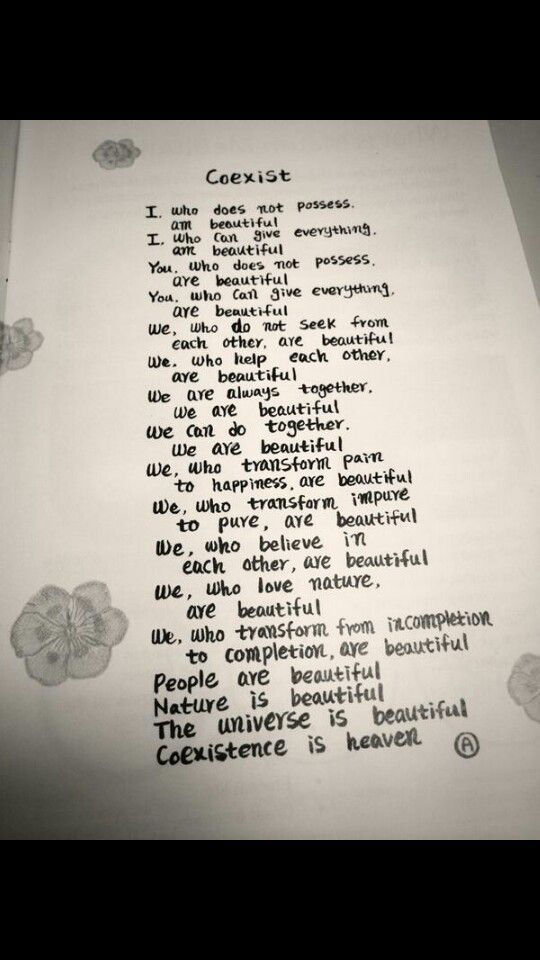 Coexist
I. who does not possess.
am beautiful
I. who can give everything.
am beautiful
You. who does not possess.
are beautiful
You. who can give everything.
are beautiful
We, who do not seek from
each other, are beautiful
We. who help each other,
are beautiful
We are always together.
we are beautiful
We can do together.
We are beautiful
We, who transform pain
to happiness, are beautiful
We, who transform impure
to pure, are beautiful
We, who believe in
each other, are beautiful
We, who love nature,
are beautiful
We, who transform from incompletion
to completion, are beautiful
People are beautiful
Nature is beautiful
The universe is beautiful
Coexistence is heaven Ⓐ